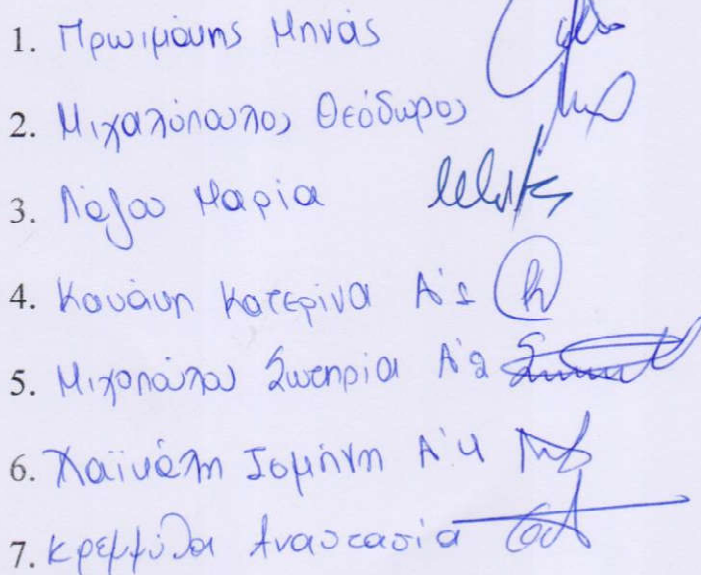 1. Πρωιμάκης Μηνάς
2. Μιχαλόπουλος Θεόδωρος
3. Λάζου Μαρία
4. Κουάκη Κατερίνα Α'1
5. Σωτηρία Α'2
6. Χαϊκάλη Ισμήνη Α'4
7. Κρεμμύδα Αναστασία